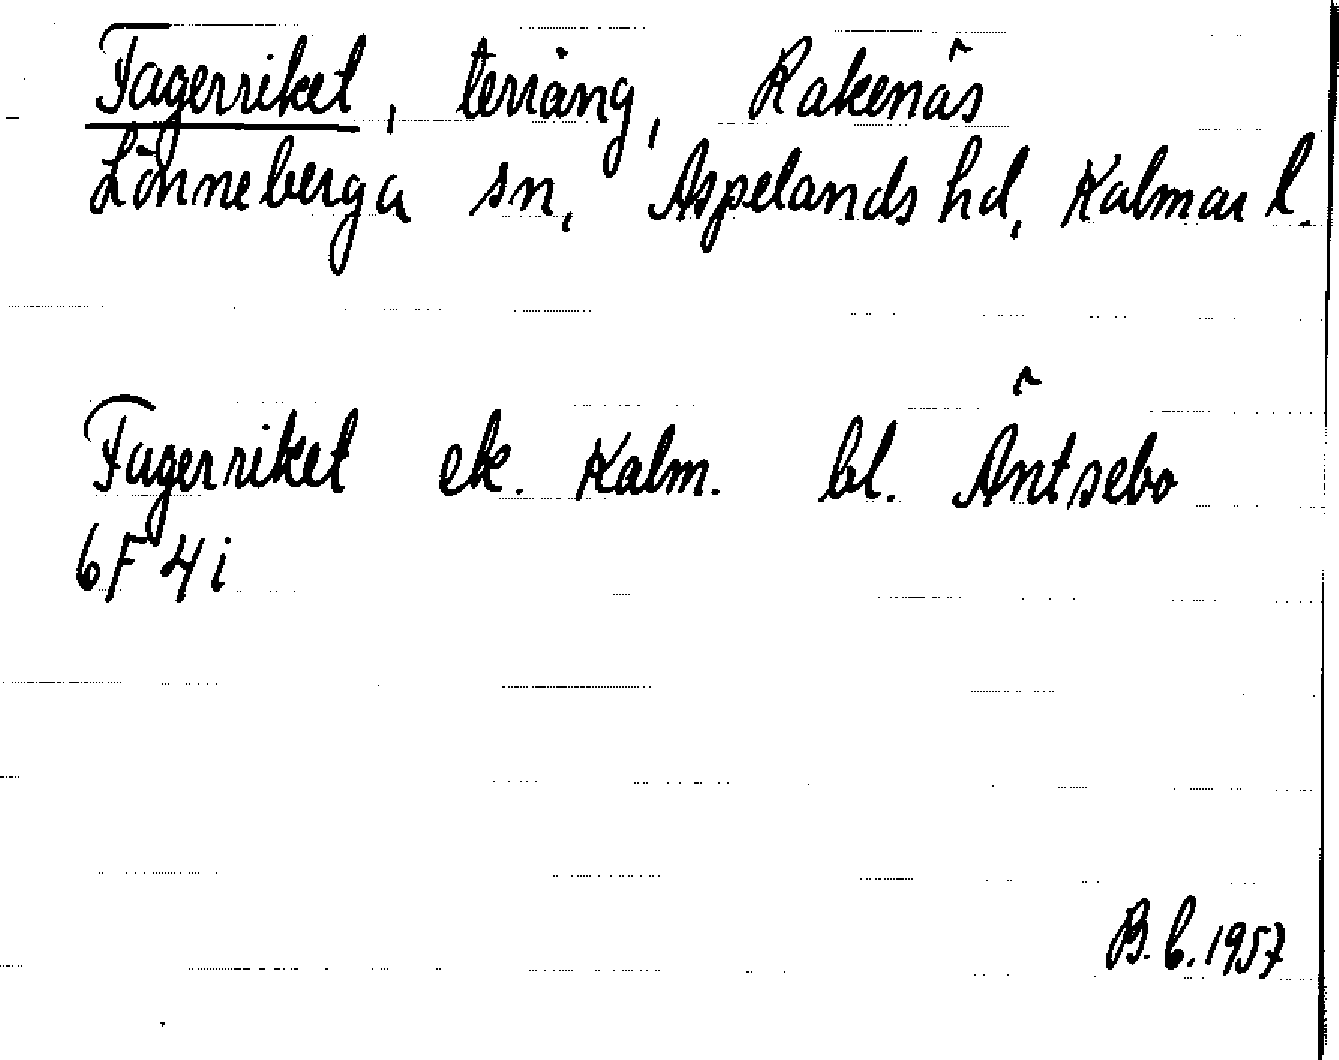 Fagerriket, terräng, Rakenäs
Lönneberga sn, Aspelands hd, Kalmar l.
Fagerriket ek. Kalm. bl. Äntsebo
6F 4i
B.b. 1957